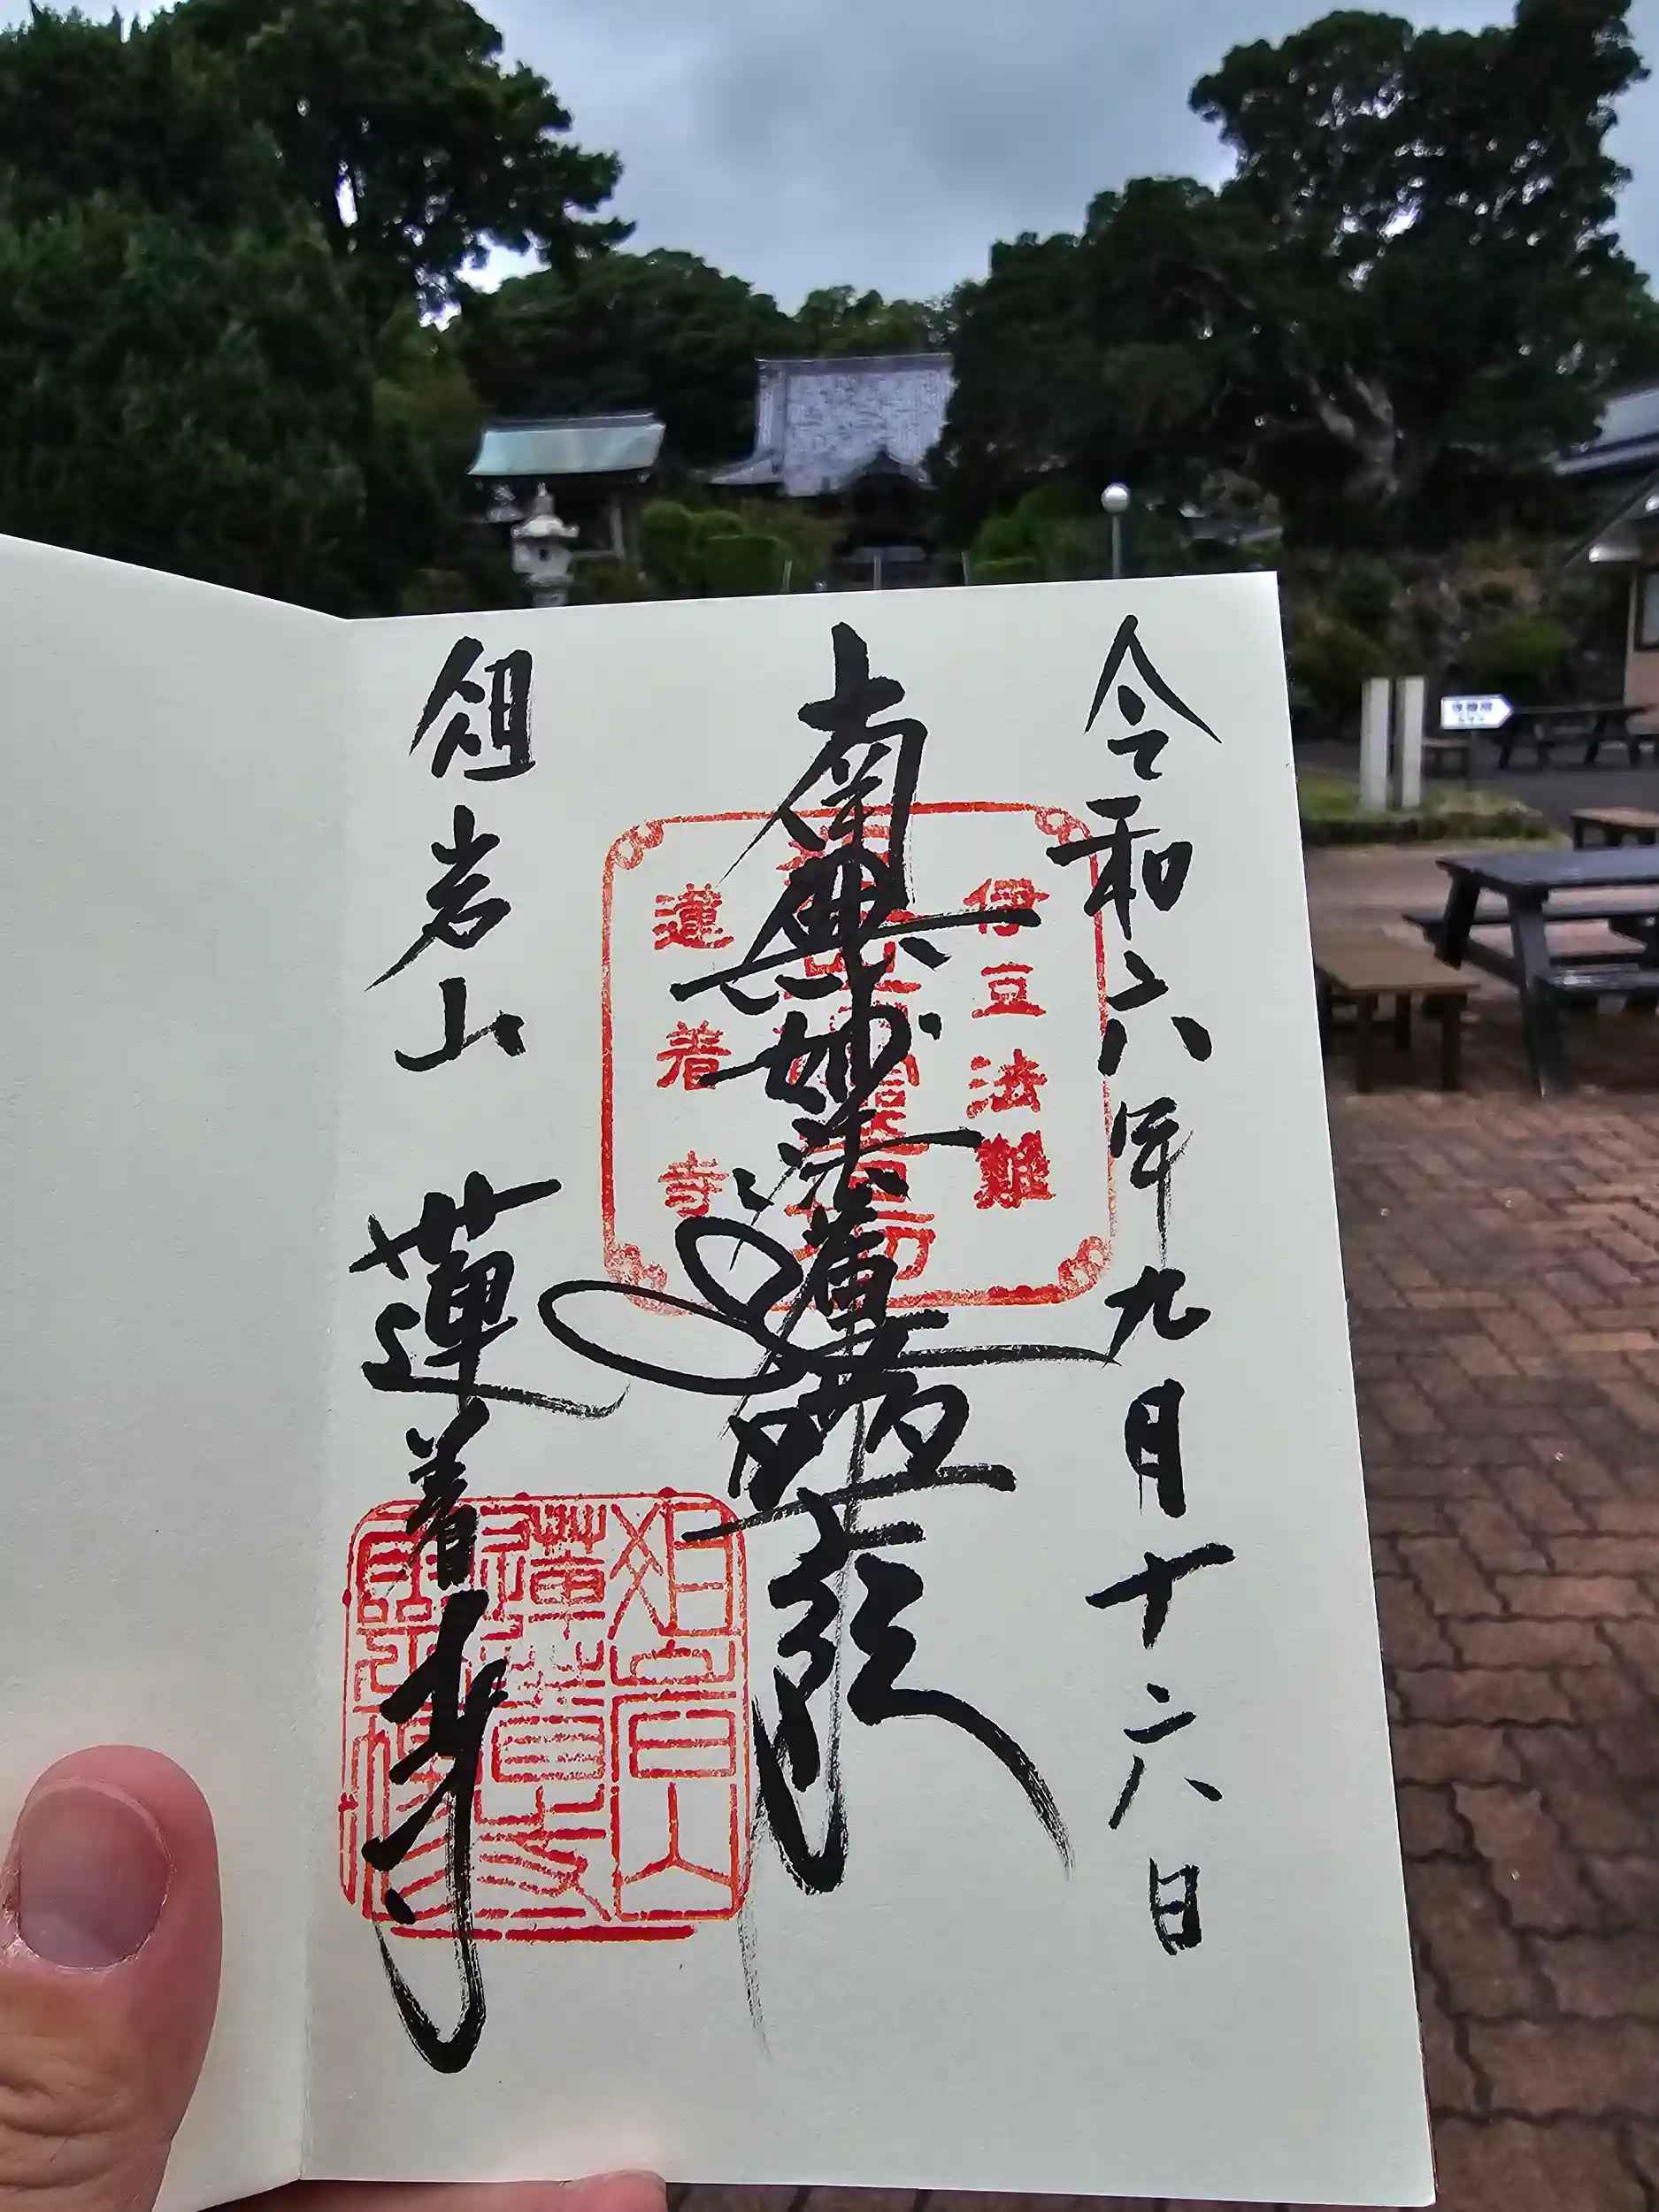 令和六年九月十六日
南無妙法蓮華経
俎岩山 蓮着寺
伊豆法難
蓮着寺